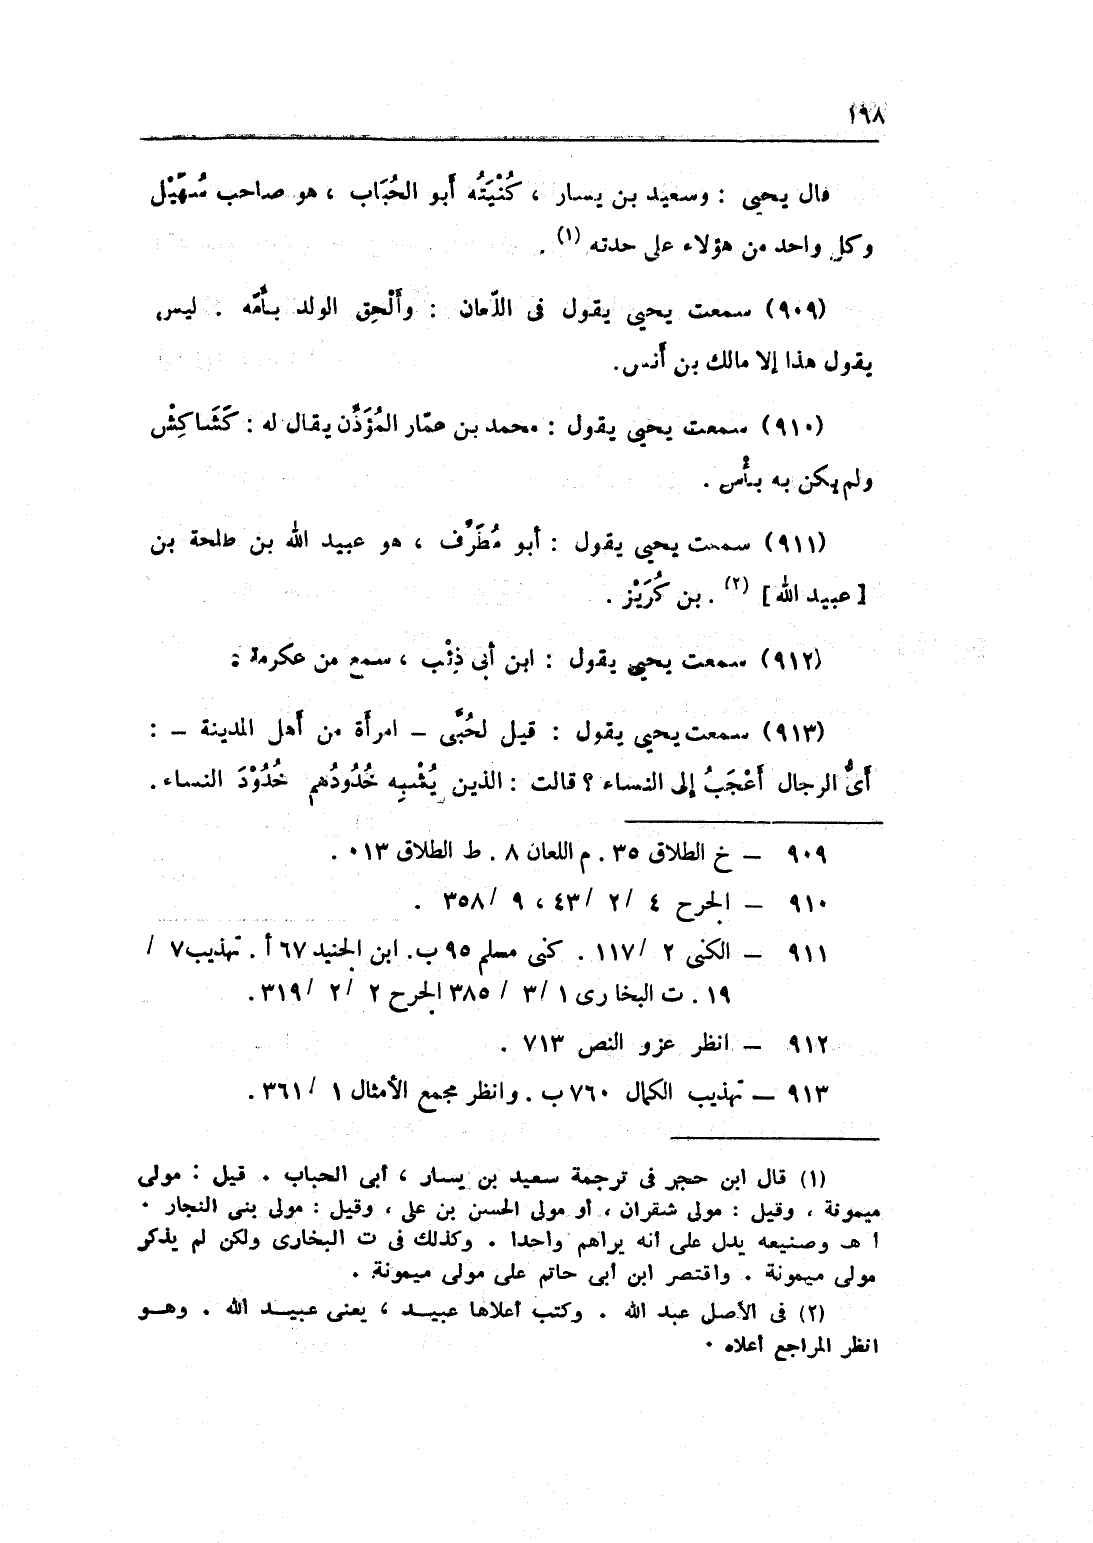 ١٩٨
قال يحيى : وسعيد بن يسار ، كُنْيَتُه أبو الحُبَاب ، هو صاحب سُهَيْل
وكل واحد من هؤلاء على حدته (١) .
(٩٠٩) سمعت يحيى يقول فى اللّعان : وأَلْحِق الولد بأُمّه . ليس
يقول هذا إلا مالك بن أَنس.
(٩١٠) سمعت يحيى يقول : محمد بن عمّار المُؤَذِّن يقال له : كَشَاكِشْ
ولم يكن به بأْس .
(٩١١) سمعت يحيى يقول : أبو مُطَرِّف ، هو عبيد الله بن طلحة بن
[ عبيد الله ] (٢) . بن كُرَيْز .
(٩١٢) سمعت يحيى يقول : ابن أبى ذِئْب ، سمع من عكرمة .
(٩١٣) سمعت يحيى يقول : قيل لحُبَّى – امرأَة من أَهل المدينة – :
أَىُّ الرجال أَعْجَبُ إلى النساء ؟ قالت : الذين يُشْبِه خُدُودُهم خُدُوْدَ النساء .
٩٠٩ – خ الطلاق ٣٥ . م اللعان ٨ . ط الطلاق ٠١٣ .
٩١٠ – الجرح ٤ /٢ /٤٣ ، ٩ /٣٥٨ .
٩١١ – الكنى ٢ /١١٧ . كنى مسلم ٩٥ ب. ابن الجنيد ٦٧ أ . تهذيب ٧ /
١٩ . ت البخارى ١ /٣ / ٣٨٥ الجرح ٢ /٢ /٣١٩ .
٩١٢ – انظر عزو النص ٧١٣ .
٩١٣ – تهذيب الكمال ٧٦٠ ب . وانظر مجمع الأمثال ١ /٣٦١ .
(١) قال ابن حجر فى ترجمة سعيد بن يسار ، أبى الحباب . قيل : مولى
ميمونة ، وقيل : مولى شقران ، أو مولى الحسن بن على ، وقيل : مولى بنى النجار .
أ هـ وصنيعه يدل على أنه يراهم واحدا . وكذلك فى ت البخارى ولكن لم يذكر
مولى ميمونة . واقتصر ابن أبى حاتم على مولى ميمونة .
(٢) فى الأصل عبد الله . وكتب أعلاها عبيد ، يعنى عبيد الله . وهو
انظر المراجع أعلاه .